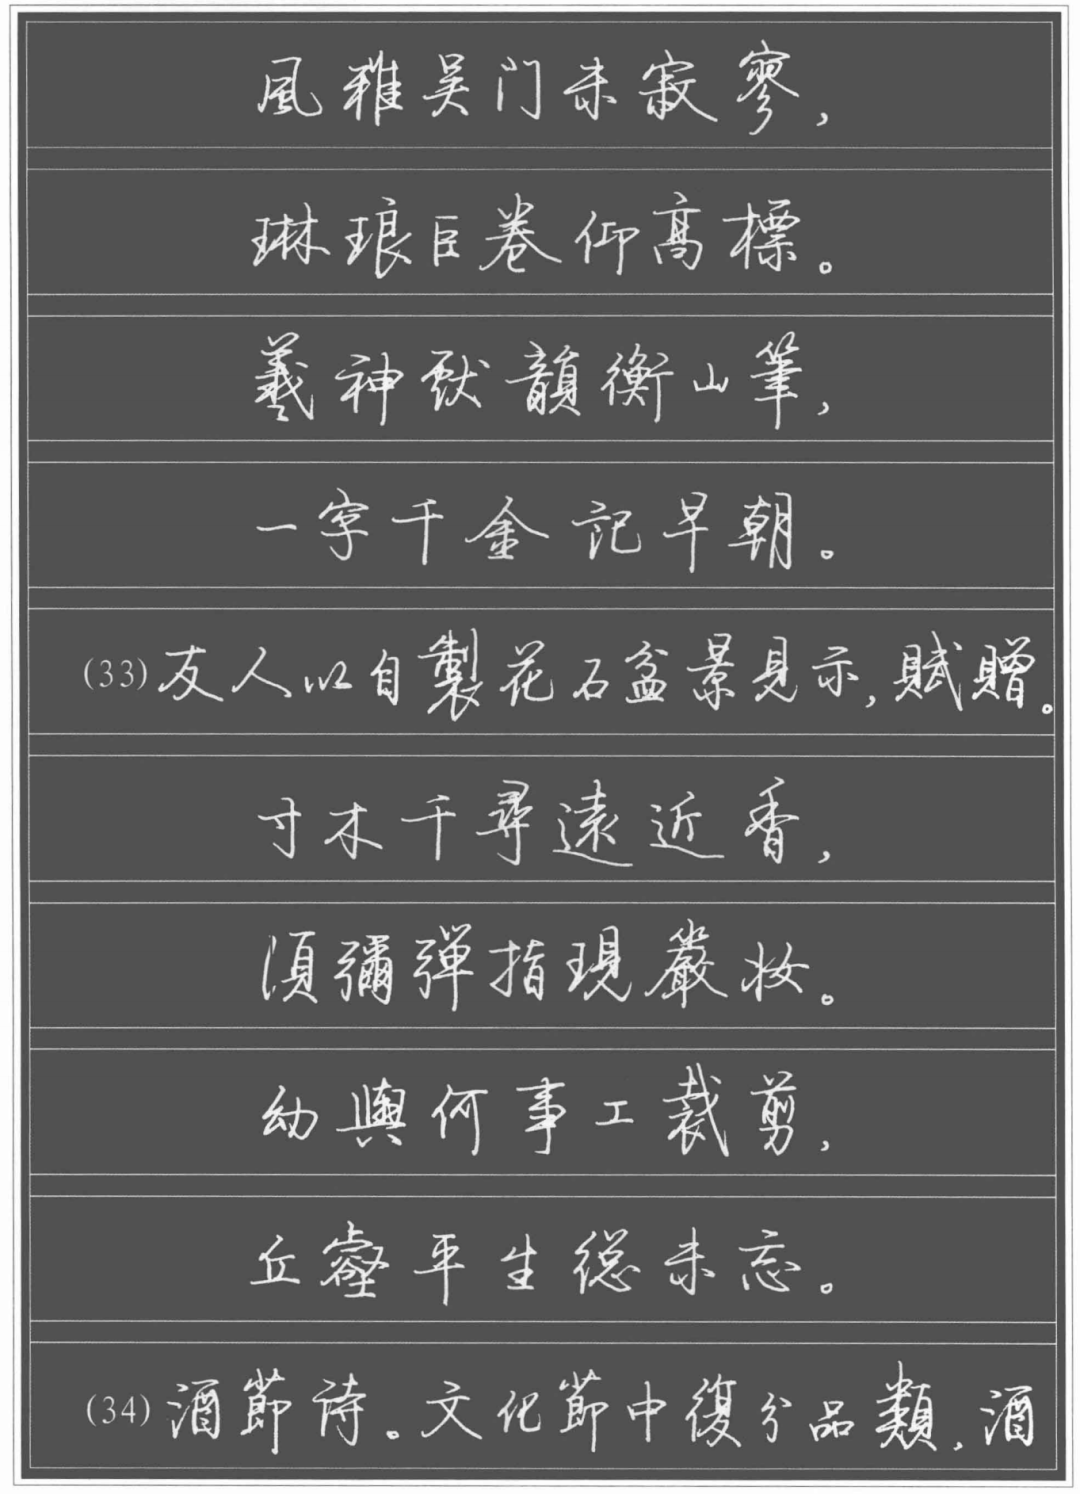 風雅吴门未寂寥，
琳琅巨卷仰高標。
羲神獻韻衡山筆，
一字千金記早朝。
(33)友人以自製花石盆景見示，賦贈。
寸木千尋遠近香，
須彌彈指現嚴妆。
幼輿何事工裁剪，
丘壑平生總未忘。
(34)酒節诗。文化節中復分品類，酒